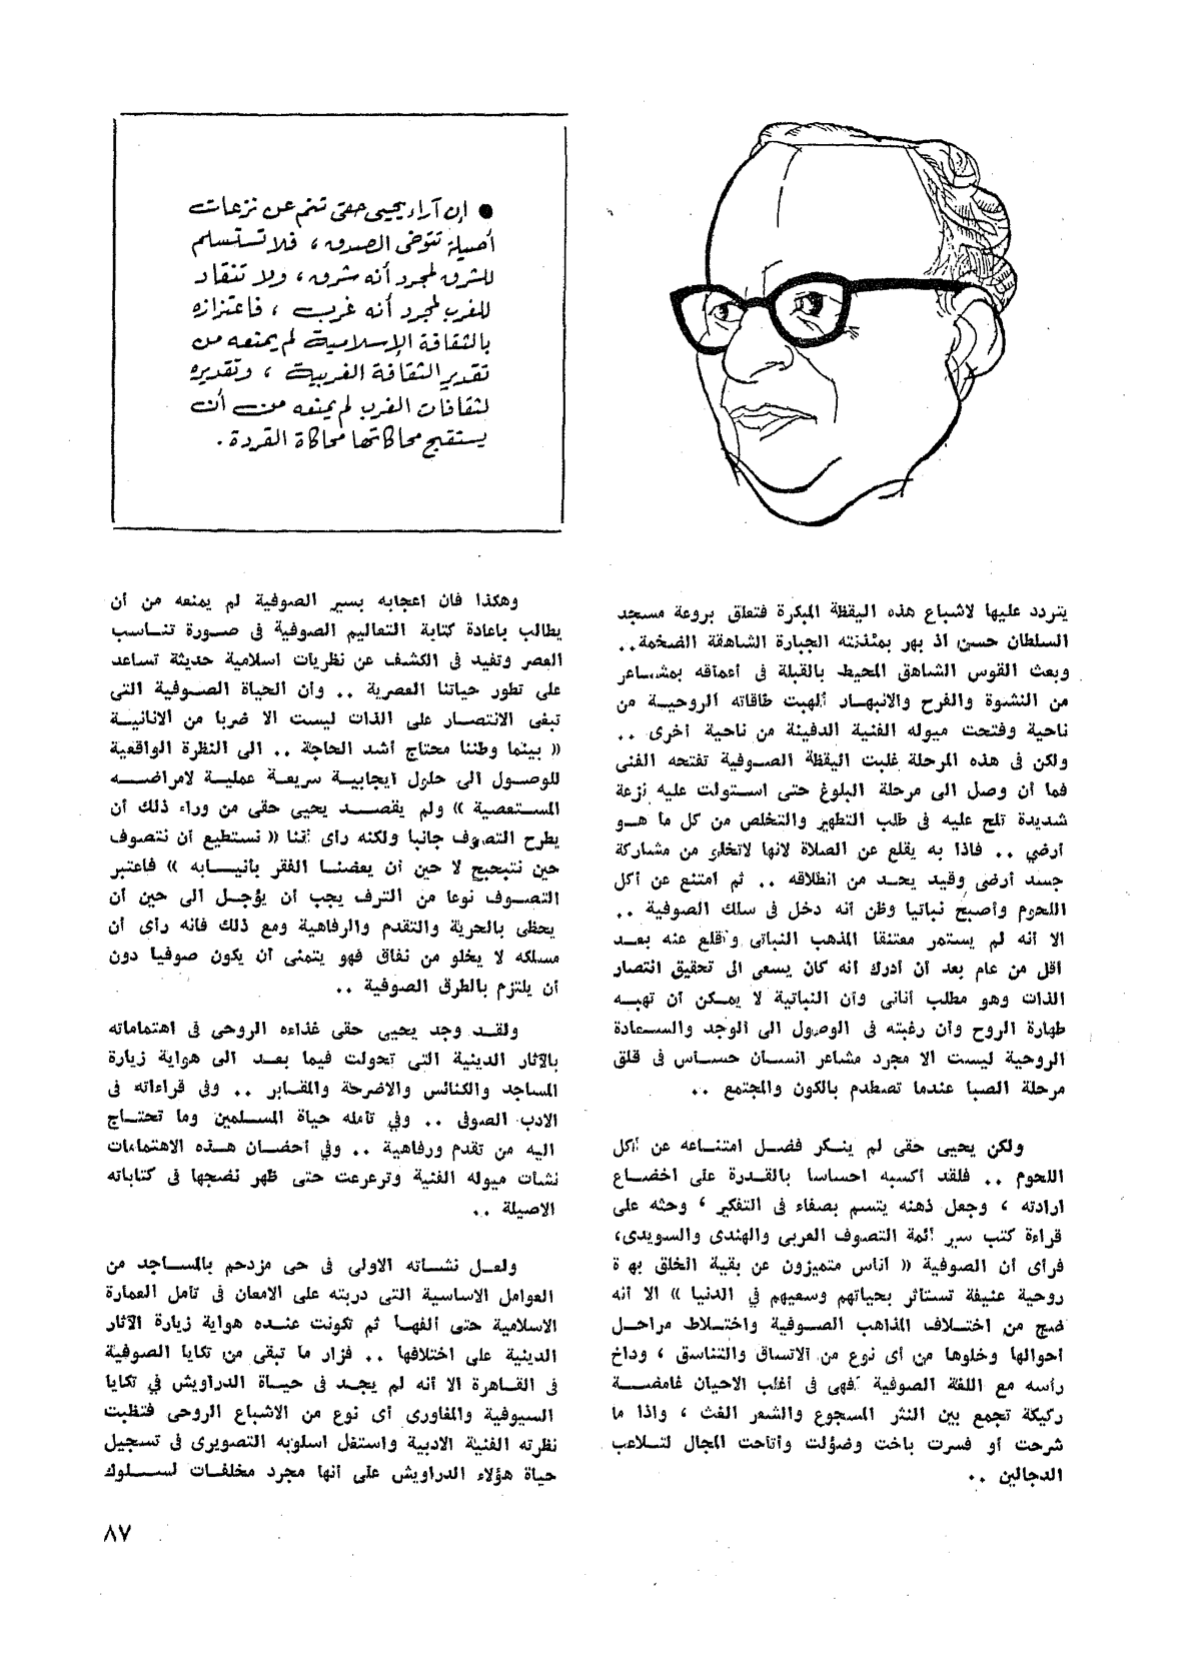 ● إن آراء يحيى حقى تنم عن نزعات
أصيلة تتوخى الصدق ، فلا تستسلم
للشرق لمجرد أنه شرق ، ولا تنقاد
للغرب لمجرد أنه غرب ، فاعتزازه
بالثقافة الإسلامية لم يمنعه من
تقدير الثقافة الغربية ، وتقديره
لثقافات الغرب لم يمنعه من أن
يستقبح محاكاتها محاكاة القردة .
يتردد عليها لاشباع هذه اليقظة المبكرة فتعلق بروعة مسجد
السلطان حسن اذ بهر بمئذنته الجبارة الشاهقة الضخمة..
وبعث القوس الشاهق المحيط بالقبلة فى أعماقه بمشاعر
من النشوة والفرح والانبهار ألهبت طاقاته الروحية من
ناحية وفتحت ميوله الفنية الدفينة من ناحية أخرى ..
ولكن فى هذه المرحلة غلبت اليقظة الصوفية تفتحه الفنى
فما أن وصل الى مرحلة البلوغ حتى استولت عليه نزعة
شديدة تلح عليه فى طلب التطهير والتخلص من كل ما هو
أرضي .. فاذا به يقلع عن الصلاة لانها لاتخلو من مشاركة
جسد أرضى وقيد يحد من انطلاقه .. ثم امتنع عن أكل
اللحوم وأصبح نباتيا وظن أنه دخل فى سلك الصوفية ..
الا أنه لم يستمر معتنقا المذهب النباتى وأقلع عنه بعد
أقل من عام بعد أن أدرك أنه كان يسعى الى تحقيق انتصار
الذات وهو مطلب أنانى وأن النباتية لا يمكن أن تهبه
طهارة الروح وأن رغبته فى الوصول الى الوجد والسعادة
الروحية ليست الا مجرد مشاعر انسان حساس فى قلق
مرحلة الصبا عندما تصطدم بالكون والمجتمع ..
ولكن يحيى حقى لم ينكر فضل امتناعه عن أكل
اللحوم .. فلقد أكسبه احساسا بالقدرة على اخضاع
ارادته ، وجعل ذهنه يتسم بصفاء فى التفكير ، وحثه على
قراءة كتب سير أئمة التصوف العربى والهندى والسويدى،
فرأى أن الصوفية « أناس متميزون عن بقية الخلق بهزة
روحية عنيفة تستأثر بحياتهم وسعيهم في الدنيا » الا أنه
ضج من اختلاف المذاهب الصوفية واختلاط مراحل
أحوالها وخلوها من أى نوع من الاتساق والتناسق ، وداخ
رأسه مع اللغة الصوفية فهى فى أغلب الاحيان غامضة
ركيكة تجمع بين النثر المسجوع والشعر الغث ، واذا ما
شرحت أو فسرت باخت وضؤلت وأتاحت المجال لتلاعب
الدجالين ..
وهكذا فان اعجابه بسير الصوفية لم يمنعه من أن
يطالب باعادة كتابة التعاليم الصوفية فى صورة تناسب
العصر وتفيد فى الكشف عن نظريات اسلامية حديثة تساعد
على تطور حياتنا العصرية .. وأن الحياة الصوفية التى
تبغى الانتصار على الذات ليست الا ضربا من الانانية
« بينما وطننا محتاج أشد الحاجة .. الى النظرة الواقعية
للوصول الى حلول ايجابية سريعة عملية لامراضه
المستعصية » ولم يقصد يحيى حقى من وراء ذلك أن
يطرح التصوف جانبا ولكنه رأى أننا « نستطيع أن نتصوف
حين نتبحبح لا حين أن يعضنا الفقر بأنيابه » فاعتبر
التصوف نوعا من الترف يجب أن يؤجل الى حين أن
يحظى بالحرية والتقدم والرفاهية ومع ذلك فانه رأى أن
مسلكه لا يخلو من نفاق فهو يتمنى أن يكون صوفيا دون
أن يلتزم بالطرق الصوفية ..
ولقد وجد يحيى حقى غذاءه الروحى فى اهتماماته
بالآثار الدينية التى تحولت فيما بعد الى هواية زيارة
المساجد والكنائس والاضرحة والمقابر .. وفى قراءاته فى
الادب الصوفى .. وفي تأمله حياة المسلمين وما تحتاج
اليه من تقدم ورفاهية .. وفي أحضان هذه الاهتمامات
نشأت ميوله الفنية وترعرعت حتى ظهر نضجها فى كتاباته
الاصيلة ..
ولعل نشأته الاولى فى حى مزدحم بالمساجد من
العوامل الاساسية التى دربته على الامعان فى تأمل العمارة
الاسلامية حتى ألفها ثم تكونت عنده هواية زيارة الآثار
الدينية على اختلافها .. فزار ما تبقى من تكايا الصوفية
فى القاهرة الا أنه لم يجد فى حياة الدراويش في تكايا
السيوفية والمغاورى أى نوع من الاشباع الروحى فتغلبت
نظرته الفنية الادبية واستغل أسلوبه التصويرى فى تسجيل
حياة هؤلاء الدراويش على أنها مجرد مخلفات لسلوك
٨٧